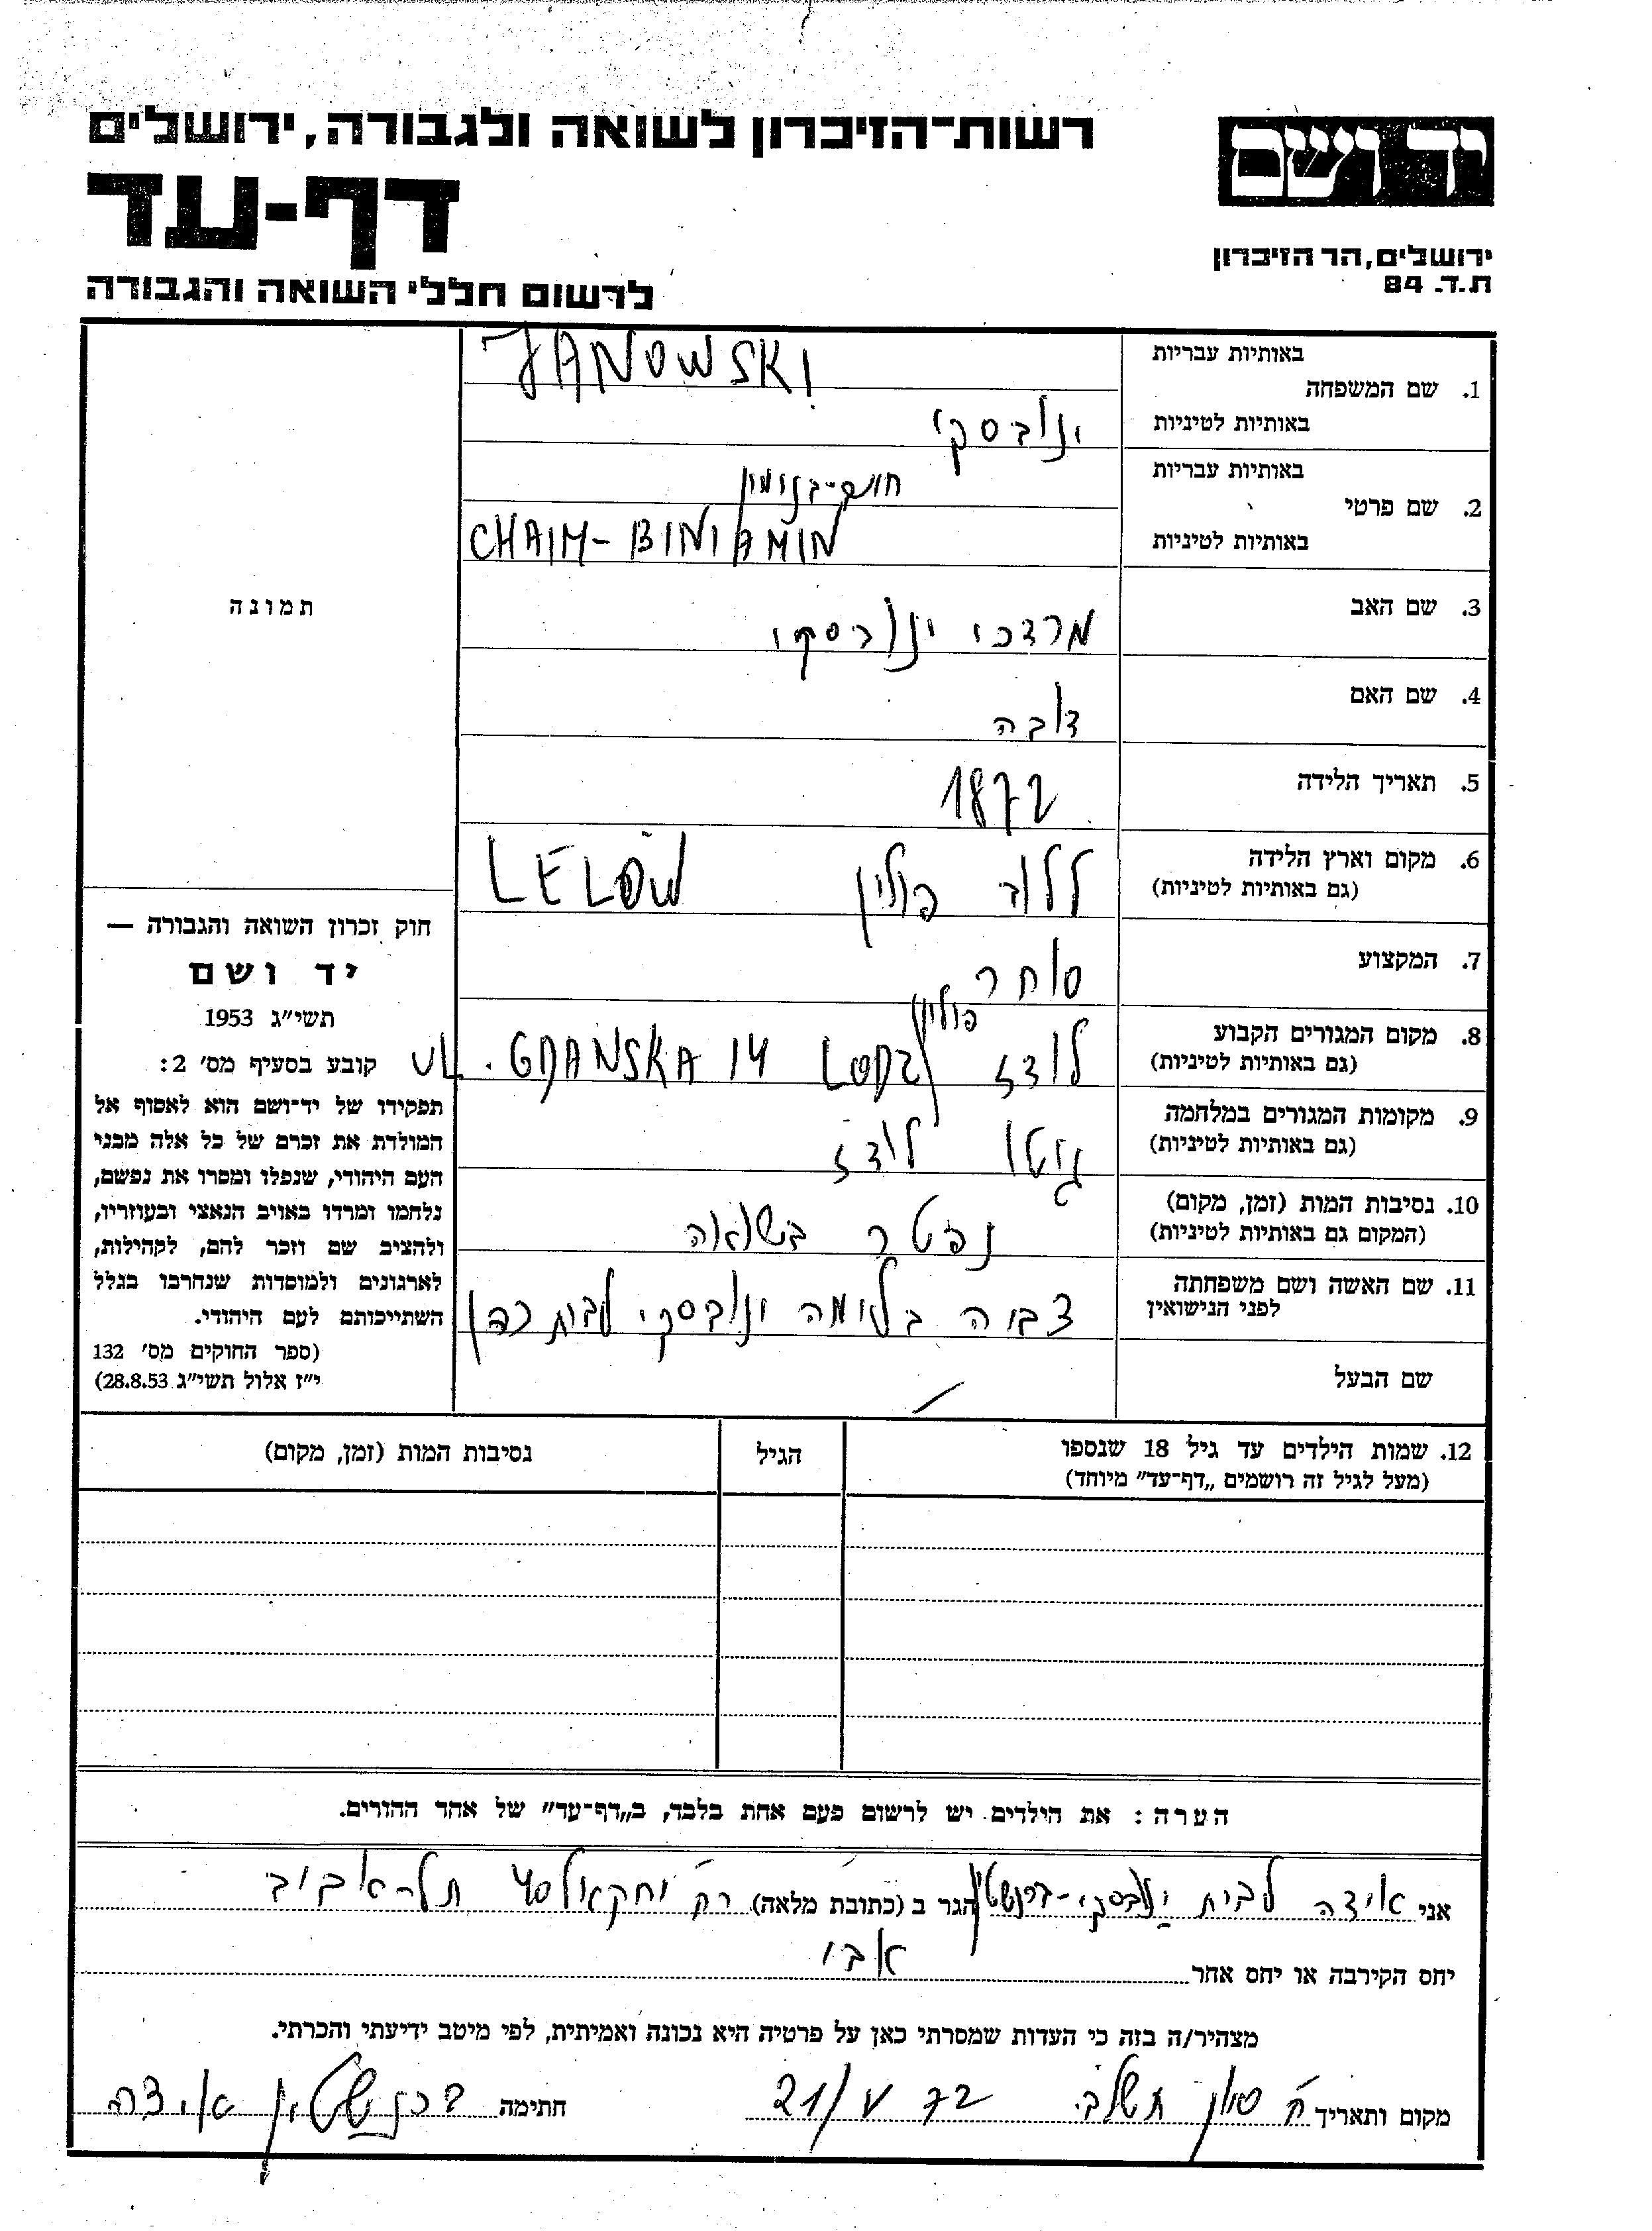 רשות־הזיכרון לשואה ולגבורה, ירושלים
יד ושם
דף-עד
ירושלים, הר הזיכרון
ת.ד. 84
לרשום חללי השואה והגבורה
באותיות עבריות
JANOWSKI
1. שם המשפחה
באותיות לטיניות
ינובסקי
באותיות עבריות
חיים-בנימין
2. שם פרטי
באותיות לטיניות
CHAIM-BINIAMIN
תמונה
3. שם האב
מרדכי ינובסקי
4. שם האם
דובה
5. תאריך הלידה
1872
6. מקום וארץ הלידה
(גם באותיות לטיניות)
ללוב פולין LELOW
7. המקצוע
סוחר
8. מקום המגורים הקבוע
(גם באותיות לטיניות)
פולין
לודז LODZ UL. GDANSKA 14
9. מקומות המגורים במלחמה
(גם באותיות לטיניות)
גיטו לודז
10. נסיבות המות (זמן, מקום)
(המקום גם באותיות לטיניות)
נפטר בשואה
11. שם האשה ושם משפחתה
לפני הנישואין
בלומה ינובסקי לבית כהן
שם הבעל
חוק זכרון השואה והגבורה —
יד ושם
תשי"ג 1953
קובע בסעיף מס' 2:
תפקידו של יד־ושם הוא לאסוף אל
המולדת את זכרם של כל אלה מבני
העם היהודי, שנפלו ומסרו את נפשם,
נלחמו ומרדו באויב הנאצי ובעוזריו,
ולהציב שם וזכר להם, לקהילות,
לארגונים ולמוסדות שנחרבו בגלל
השתייכותם לעם היהודי.
(ספר החוקים מס' 132
י"ז אלול תשי"ג 28.8.53)
12. שמות הילדים עד גיל 18 שנספו
(מעל לגיל זה רושמים „דף־עד" מיוחד)
הגיל
נסיבות המות (זמן, מקום)
הערה: את הילדים יש לרשום פעם אחת בלבד, ב„דף־עד" של אחד ההורים.
אני אידה לבית ינובסקי- הגר ב (כתובת מלאה) רח תל-אביב
יחס הקירבה או יחס אחר אבי
מצהיר/ה בזה כי העדות שמסרתי כאן על פרטיה היא נכונה ואמיתית, לפי מיטב ידיעתי והכרתי.
מקום ותאריך ח סיון תשלב. 21/V 72 חתימה אידה